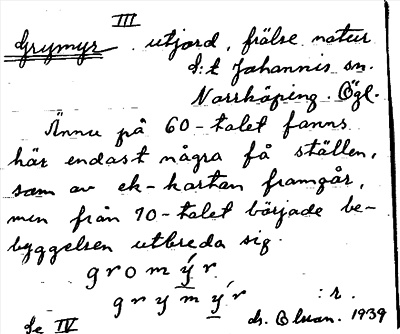 III
Grymyr. utjord, frälse natur
S:t Johannis sn.
Norrköping. Ögl.
Ännu på 60-talet fanns
här endast några få ställen,
som av ek-kartan framgår,
men från 70-talet började be-
byggelsen utbreda sig.
gromýr
grymýr :r.
Se IV 1939